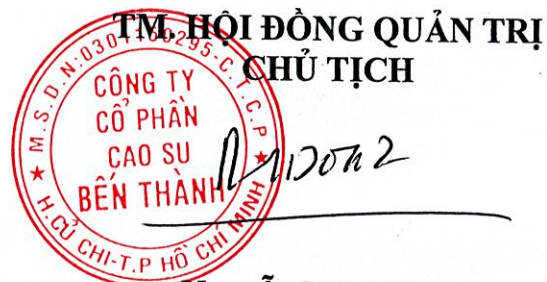 TM. HỘI ĐỒNG QUẢN TRỊ
CHỦ TỊCH
CÔNG TY
CỔ PHẦN
CAO SU
BẾN THÀNH
H. CỦ CHI-T.P HỒ CHÍ MINH